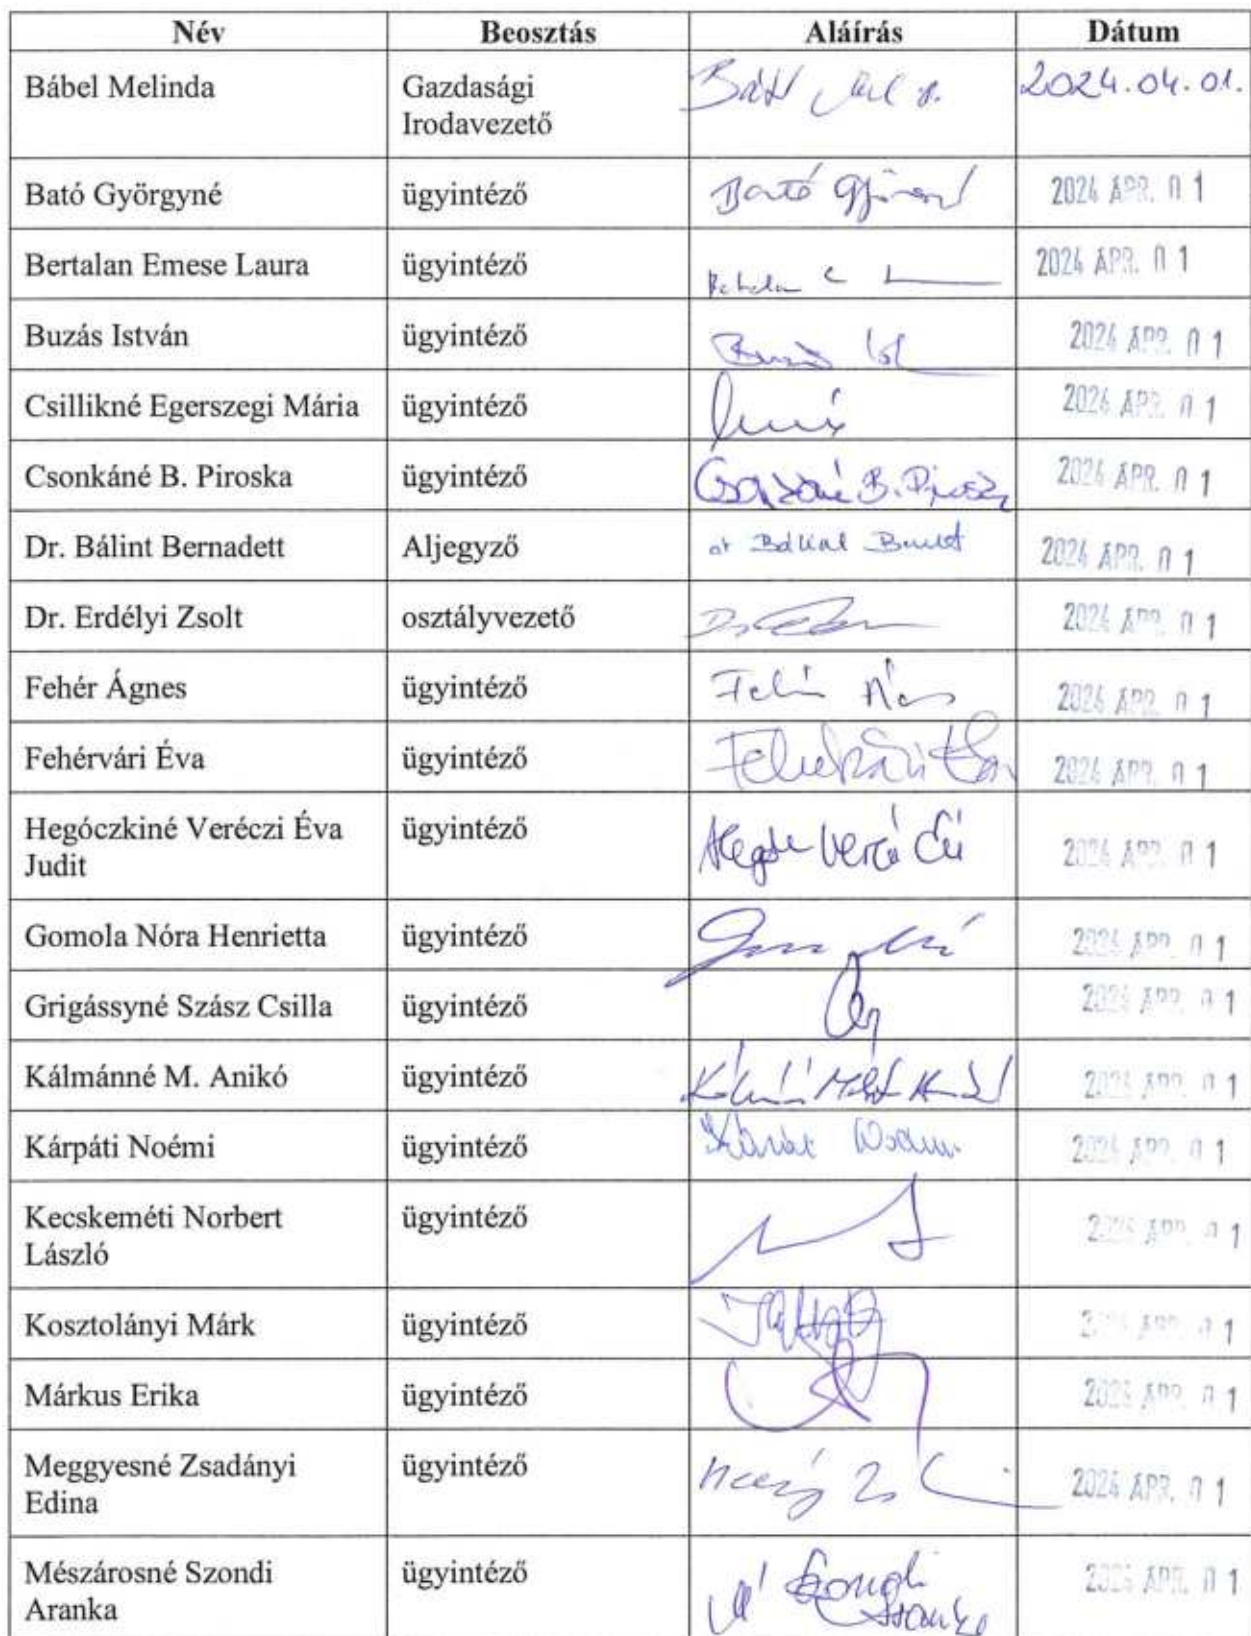 Név Beosztás Aláírás Dátum
Bábel Melinda Gazdasági 2024.04.01.
Irodavezető
Bató Györgyné ügyintéző Bató 2024 ÁPR. 01
Bertalan Emese Laura ügyintéző 2024 ÁPR. 01
Buzás István ügyintéző 2024 ÁPR. 01
Csillikné Egerszegi Mária ügyintéző 2024 ÁPR. 01
Csonkáné B. Piroska ügyintéző 2024 ÁPR. 01
Dr. Bálint Bernadett Aljegyző 2024 ÁPR. 01
Dr. Erdélyi Zsolt osztályvezető 2024 ÁPR. 01
Fehér Ágnes ügyintéző 2024 ÁPR. 01
Fehérvári Éva ügyintéző 2024 ÁPR. 01
Hegóczkiné Veréczi Éva ügyintéző 2024 ÁPR. 01
Judit
Gomola Nóra Henrietta ügyintéző 2024 ÁPR. 01
Grigássyné Szász Csilla ügyintéző 2024 ÁPR. 01
Kálmánné M. Anikó ügyintéző 2024 ÁPR. 01
Kárpáti Noémi ügyintéző 2024 ÁPR. 01
Kecskeméti Norbert ügyintéző 2024 ÁPR. 01
László
Kosztolányi Márk ügyintéző 2024 ÁPR. 01
Márkus Erika ügyintéző 2024 ÁPR. 01
Meggyesné Zsadányi ügyintéző 2024 ÁPR. 01
Edina
Mészárosné Szondi ügyintéző 2024 ÁPR. 01
Aranka